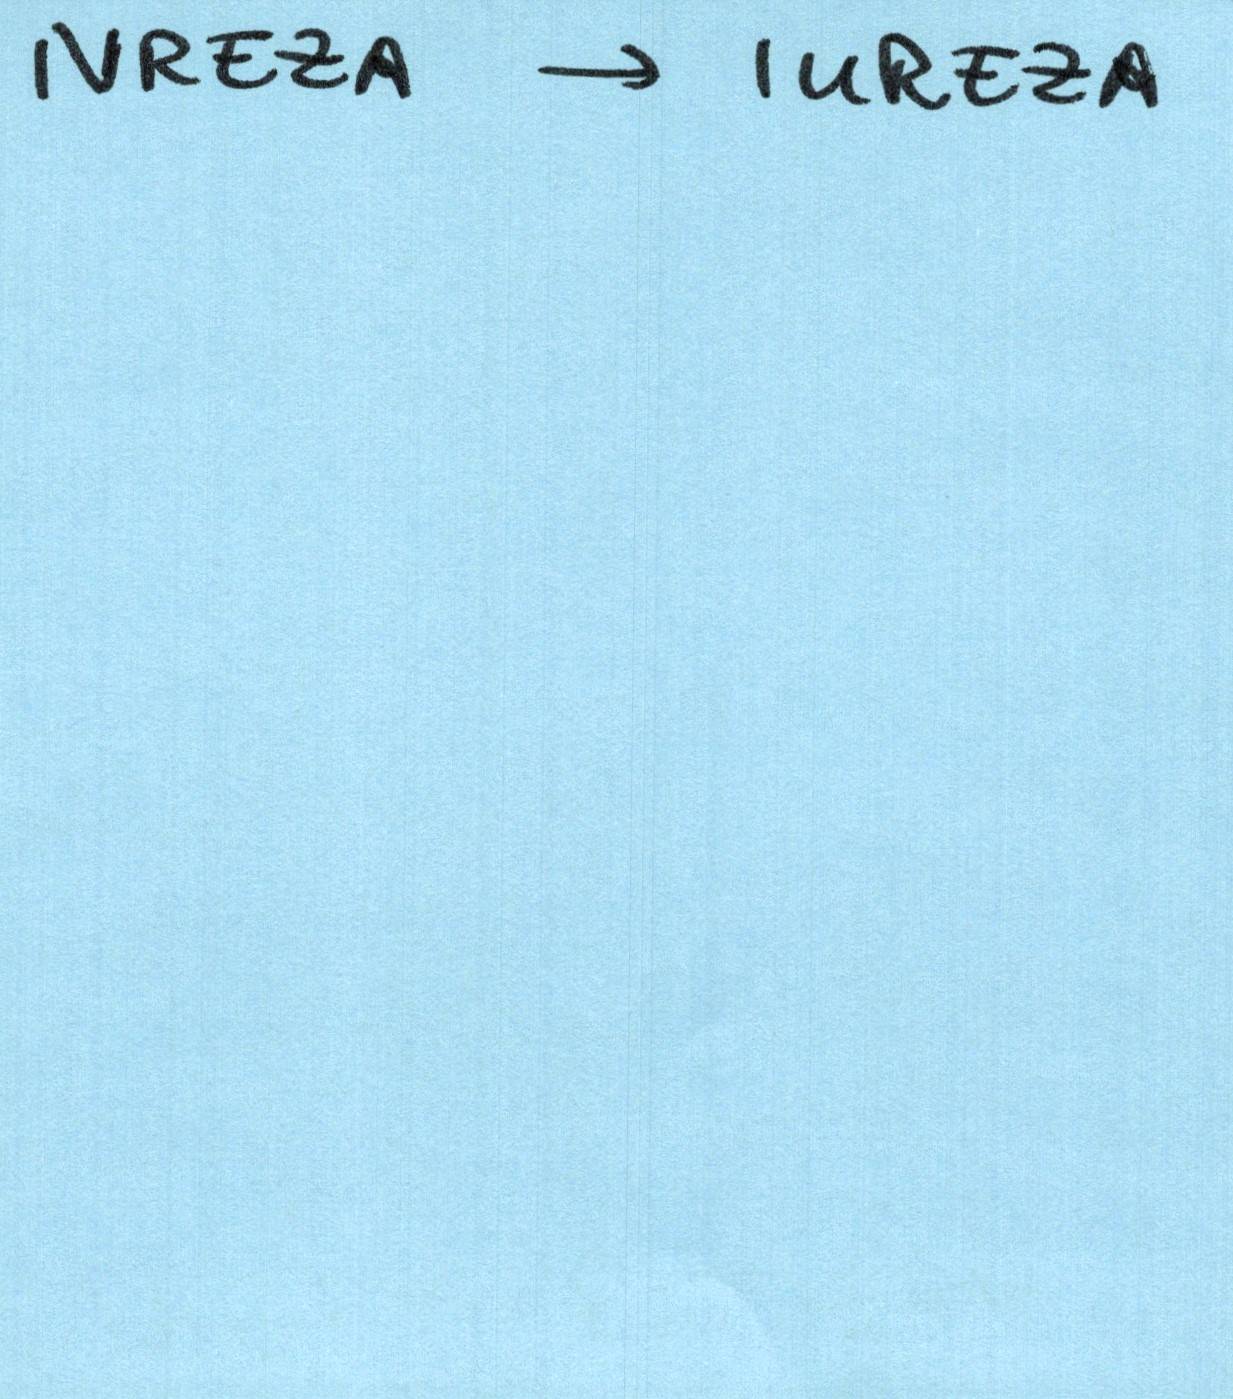 IVREZA → IUREZA